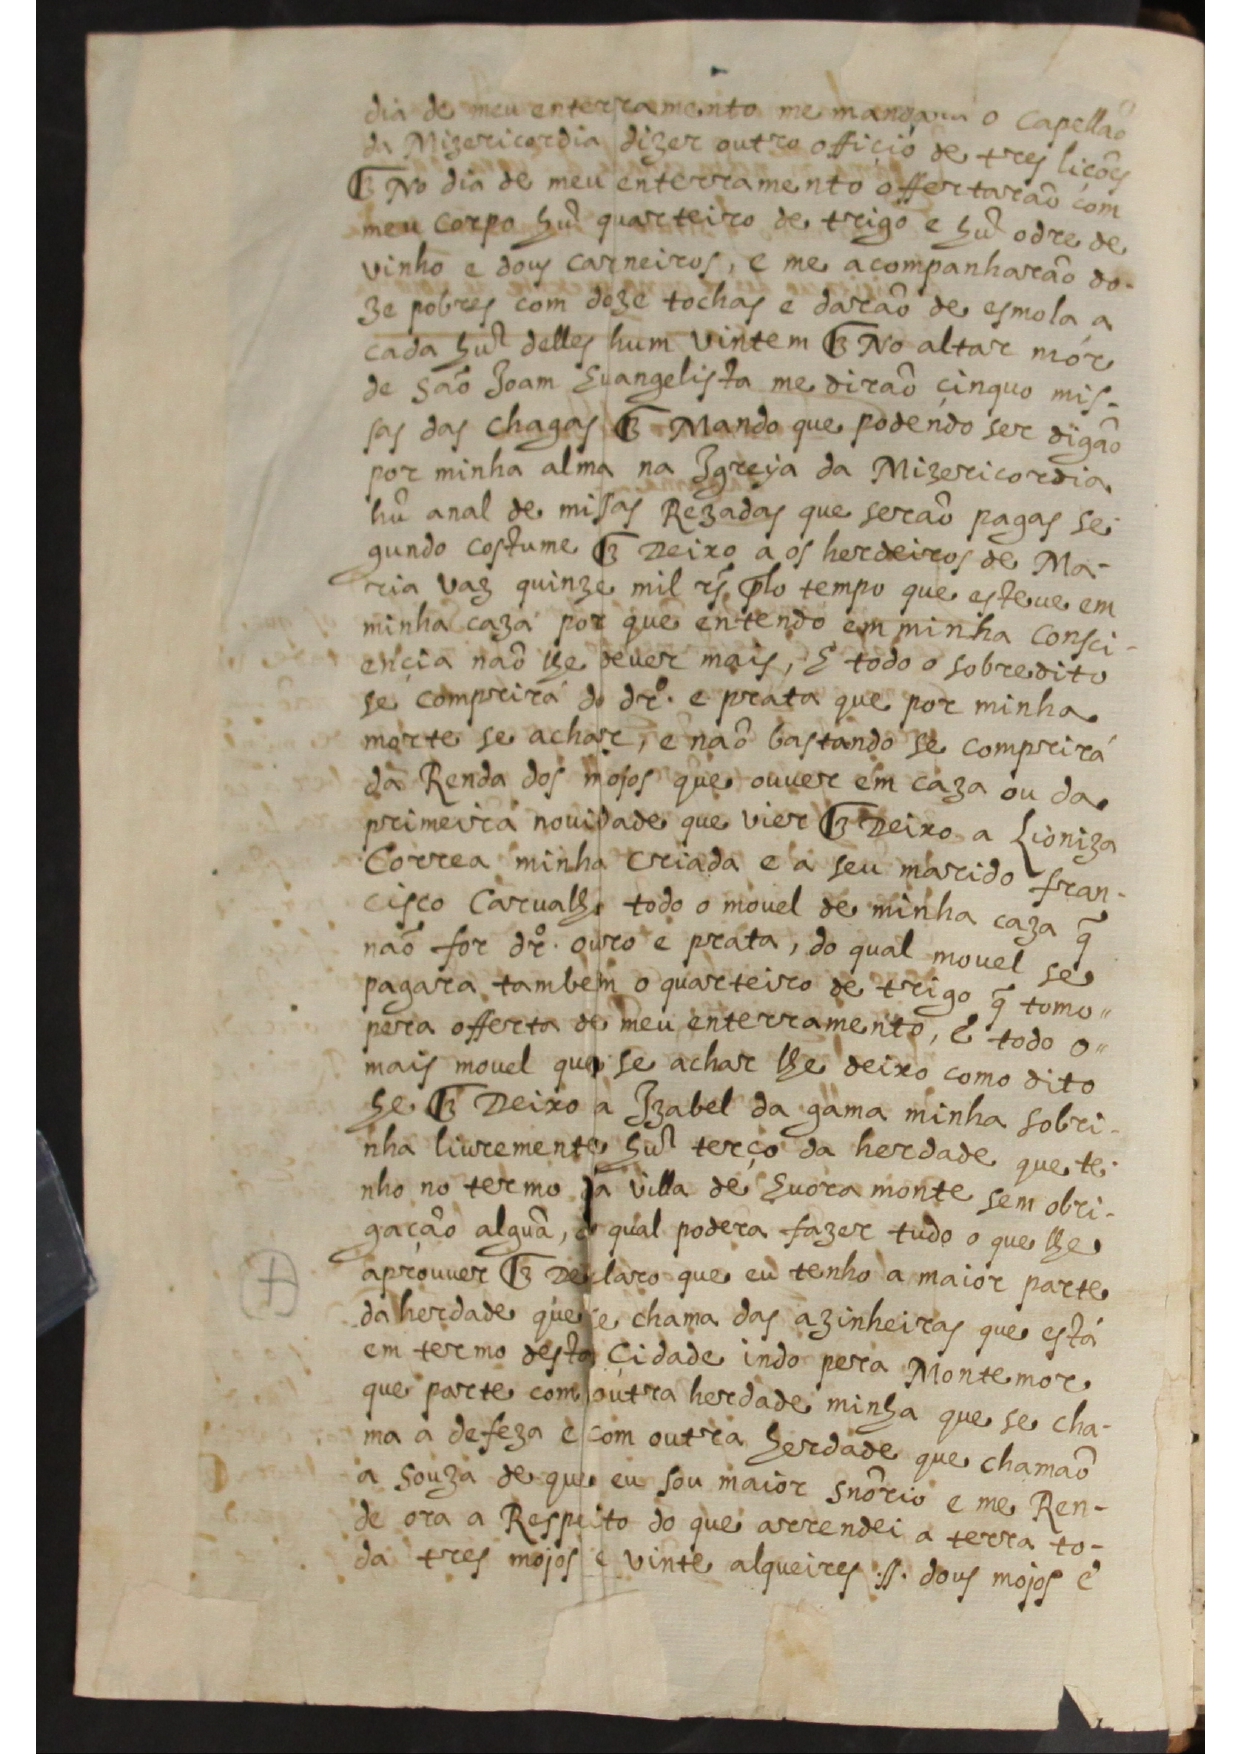 dia de meu enterramento me mandara o Capellaõ
da Mizericordia dizer outro officio de tres liçoẽs
₢ No dia de meu enterramento offertaraõ com
meu corpo hũ quarteiro de trigo e hũ odre de
vinho e dous carneiros, e me acompanharaõ do-
ze pobres com doze tochas e daraõ de esmola a
cada hũ delles hum vintem ₢ No altar mór
de saõ Joam Euangelista me diraõ çinquo mis-
sas das chagas ₢ Mando que podendo ser digaõ
por minha alma na Igreja da Mizericordia
hũ anal de missas Rezadas que seraõ pagas se-
gundo costume ₢ Deixo a os herdeiros de Ma-
ria Vaz quinze mil rs̃ p̃lo tempo que esteue em
minha caza por que entendo em minha consci-
ençia naõ lhe dever mais, E todo o sobredito
se comprirá do drº. e prata que por minha
morte se achar, e naõ bastando se comprirá
da Renda dos mojos que ouuer em caza ou da
primeira nouidade que vier ₢ Deixo a Lioniza
Correa minha criada e a seu marido fran-
cisco Carualho todo o mouel de minha caza q̃
naõ for drº. ouro e prata, do qual mouel se
pagara tambem o quarteiro de trigo q̃ tomo"
pera offerta de meu enterramento, E todo o"
mais mouel que se achar lhe deixo como dito
he ₢ Deixo a Izabel da gama minha sobri-
nha liuremente hũ terço da herdade que te-
nho no termo da villa de Euora monte sem obri-
gaçaõ alguã, do qual podera fazer tudo o que lhe
aprouuer ₢ Declaro que eu tenho a maior parte
da herdade que se chama das azinheiras que está
em termo desta Çidade indo pera Montemor
que parte com outra herdade minha que se cha-
ma a defeza e com outra herdade que chamaõ
a souza de que eu sou maior sñorio e me Ren-
de ora a Respeito do que arrendei a terra to-
da tres mojos e vinte alqueires .s. dous mojos e